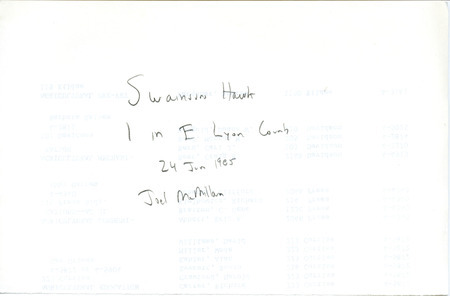 Swainsons Hawk
1 in E Lyon County
24 Jun 1985
Joel McMillan